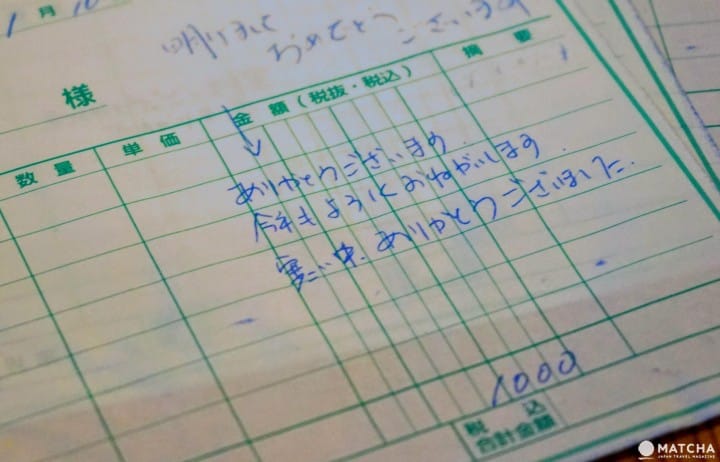 1月10
明けまして
おめでとう
ございます
様
数量 単価 金額(税抜・税込) 摘要
ありがとうございます
今年もよろしくおねがいします
寒い中、ありがとうございました.
1000
税込
合計金額
MATCHA
JAPAN TRAVEL MAGAZINE